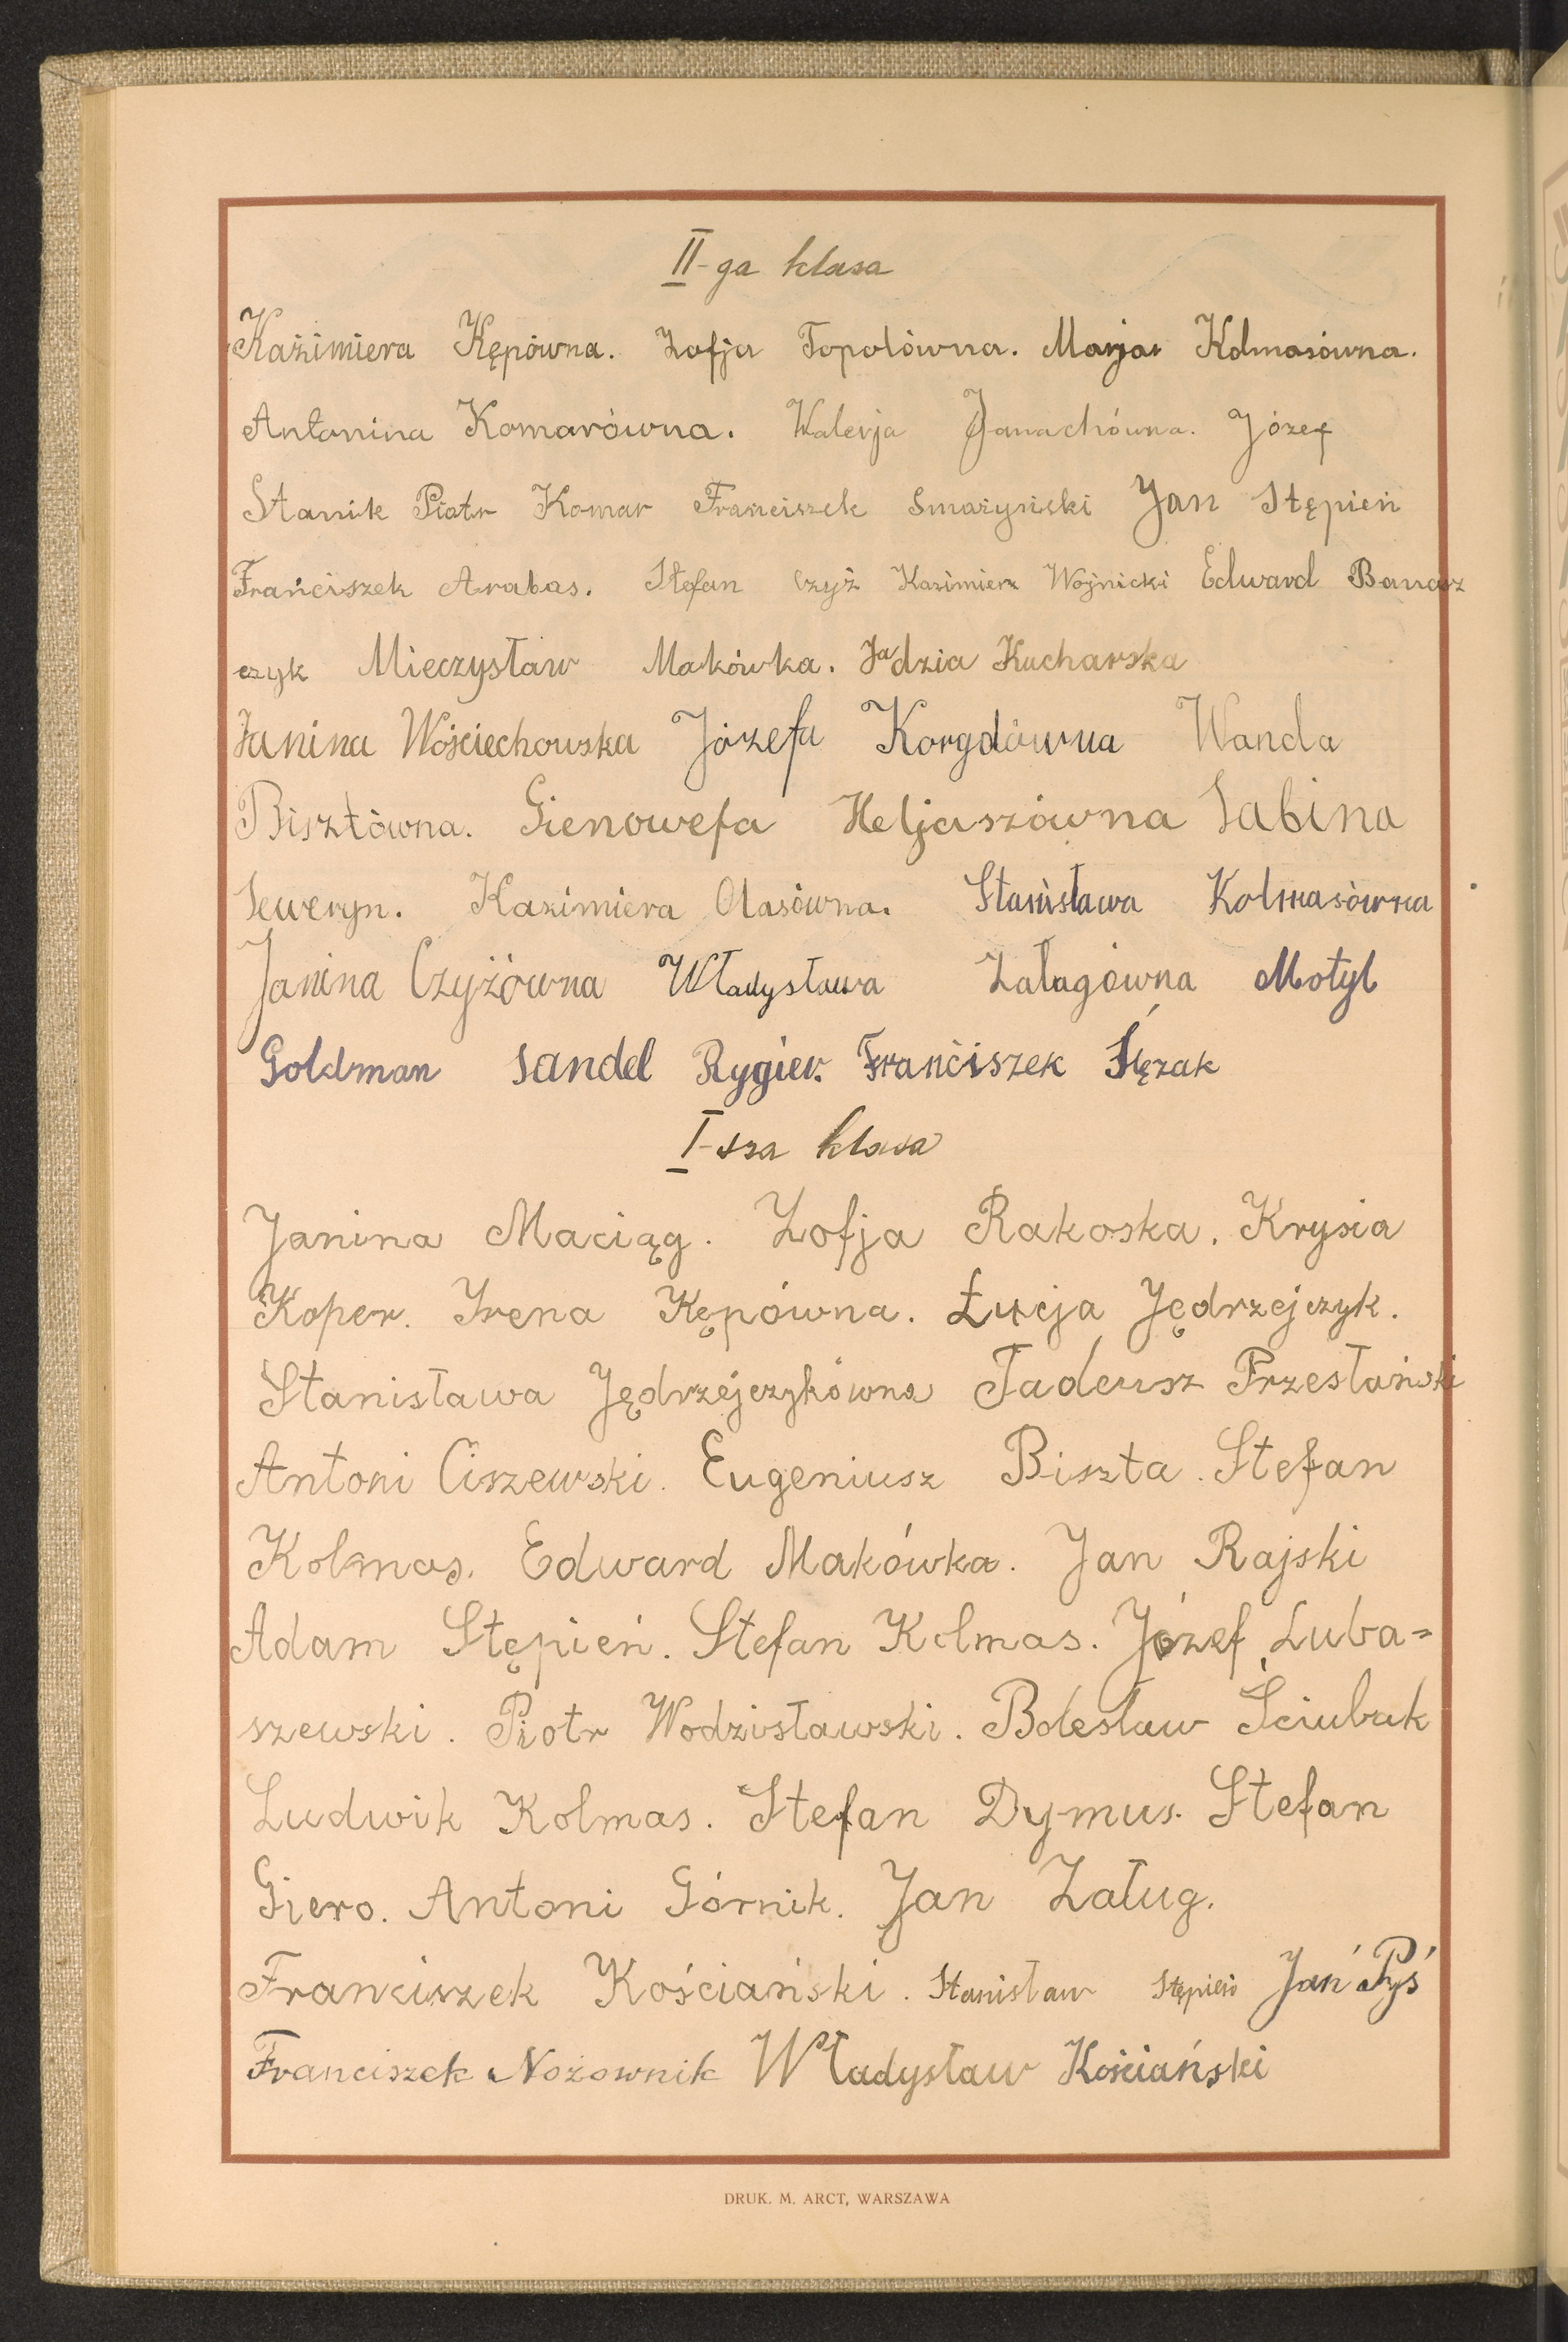 II-ga klasa
Kazimiera Kępówna. Zofja Topolówna. Marja Kolmasówna.
Antonina Komarówna. Walerja Janachówna. Józef
Stanik Piotr Komar Franciszek Smażyński Jan Stępień
Franciszek Arabas. Stefan Czyż Kazimierz Wojnicki Edward Banasz
czyk Mieczysław Makówka. Jadzia Kucharska
Janina Wojciechowska Józefa Korgdówna Wanda
Bisztówna. Gienowefa Heljaszówna Sabina
Seweryn. Kazimiera Olasówna. Stanisława Kolmasówna
Janina Czyżówna Władysława Załagówna Motyl
Goldman Sandel Rygier. Franciszek Ślęzak
I-sza klasa
Janina Maciąg. Zofja Rakoska. Krysia
Koper. Irena Kępówna. Łucja Jędrzejczyk.
Stanisława Jędrzejczykówna Tadeusz Przesłański
Antoni Ciszewski. Eugeniusz Biszta. Stefan
Kolmas. Edward Makówka. Jan Rajski
Adam Stępień. Stefan Kolmas. Józef Luba=
szewski. Piotr Wodzisławski. Bolesław Ściubak
Ludwik Kolmas. Stefan Dymus. Stefan
Giero. Antoni Górnik. Jan Załug.
Franciszek Kościański. Stanisław Stępień Jan Pyś
Franciszek Nożownik Władysław Kościański
DRUK. M. ARCT, WARSZAWA